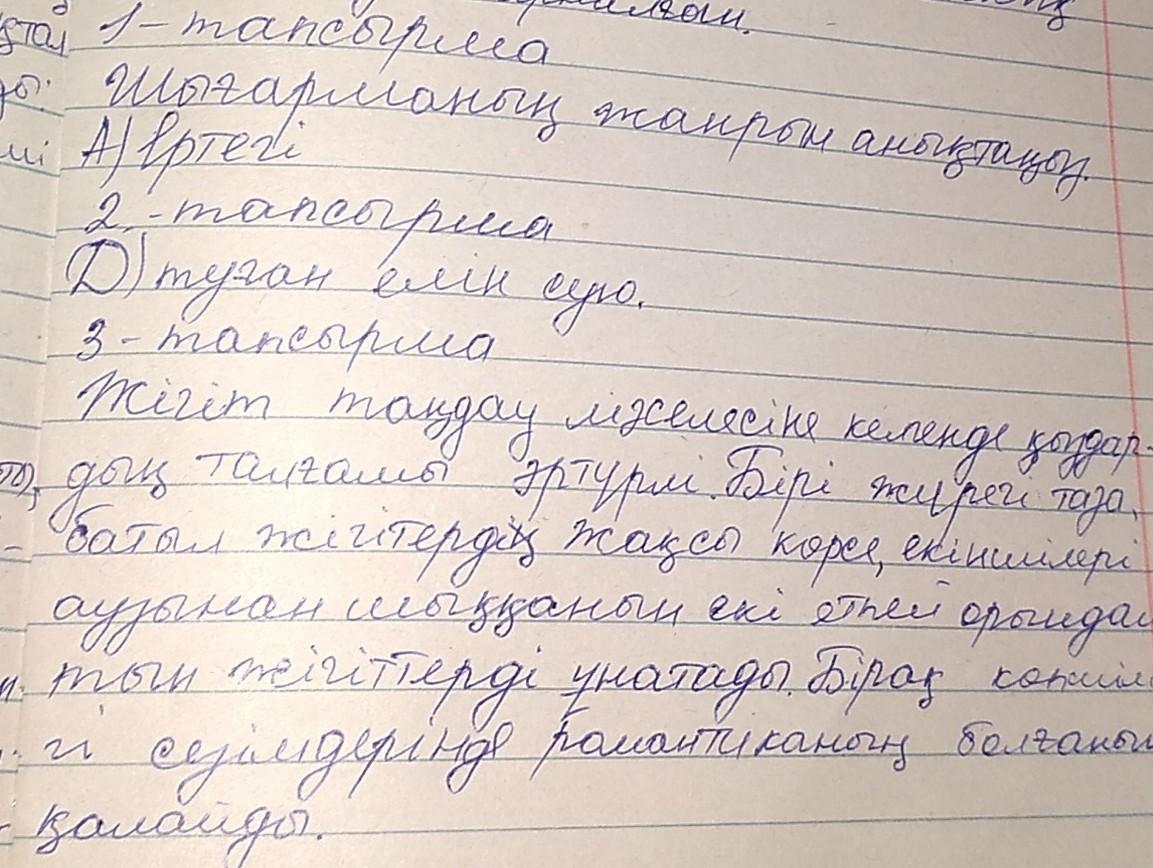 1-тапсырма
Шығарманың жанрын анықтаңыз.
А) Ертегі
2.-тапсырма
D) туған елін сүю.
3-тапсырма
Жігіт таңдау мәселесіне келенде қыздар-
дың талғамы әртүрлі. Бірі жүрегі таза,
батыл жігітердің жақсы көрсе, екіншілері
аузынан шыққанын екі етпей орындай
тын жігіттерді ұнатады. Бірақ көпшілі
гі сезімдерінде романтиканың болғанын
қалайды.